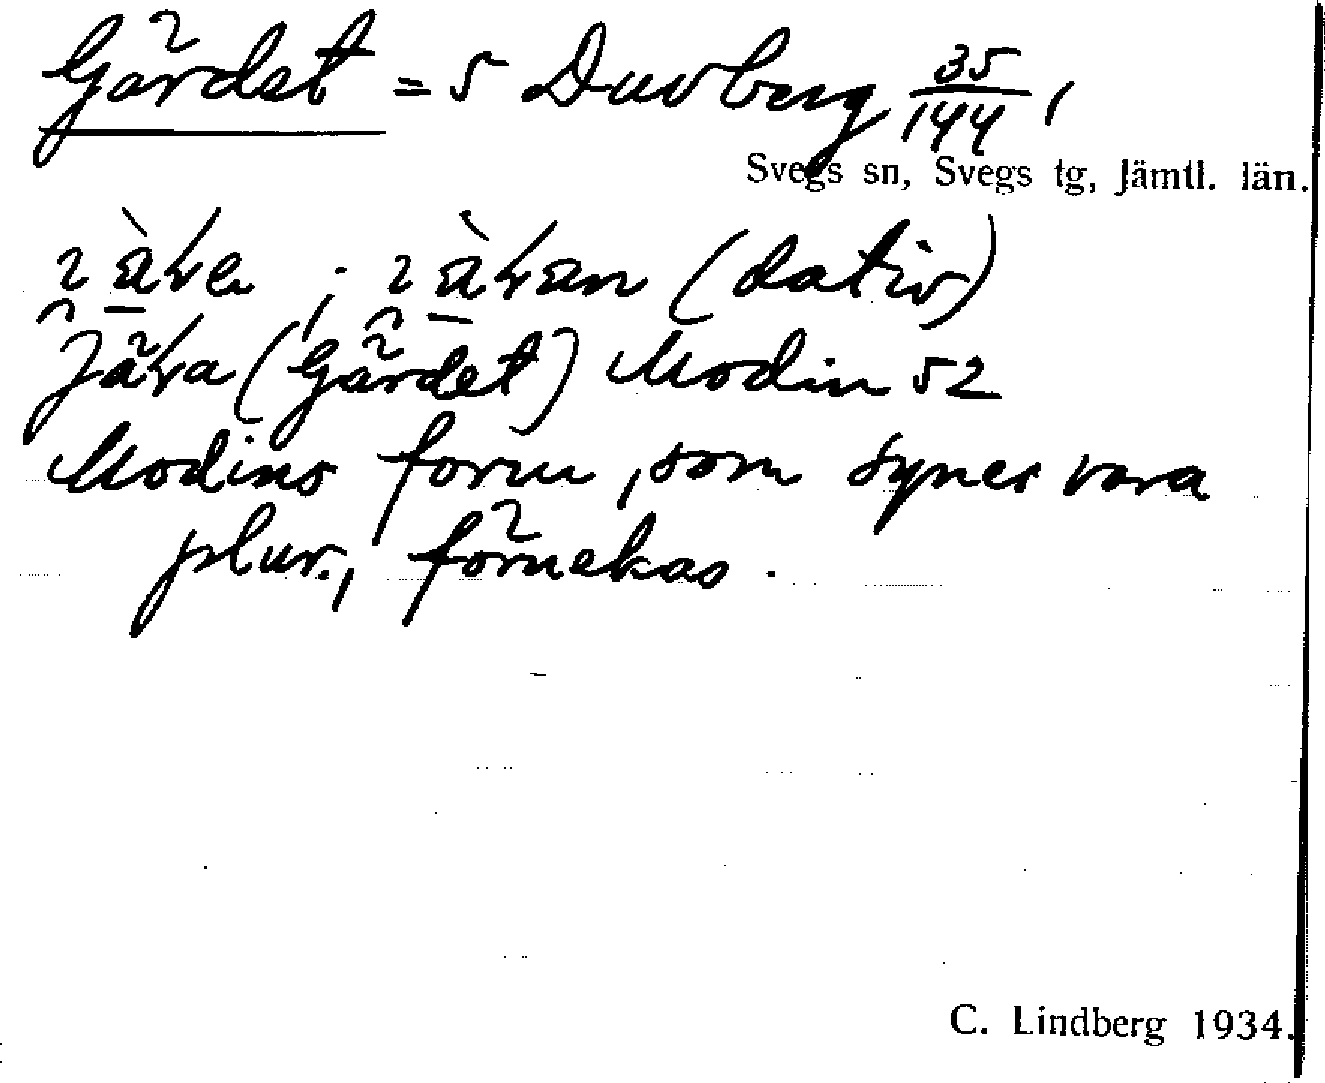 Gärdet = 5 Duvberg 35/144,
Svegs sn, Svegs tg, Jämtl. län.
(dativ)
(Gärdet) Modin 52
Modins form, som synes vara
plur., förnekas.
C. Lindberg 1934.